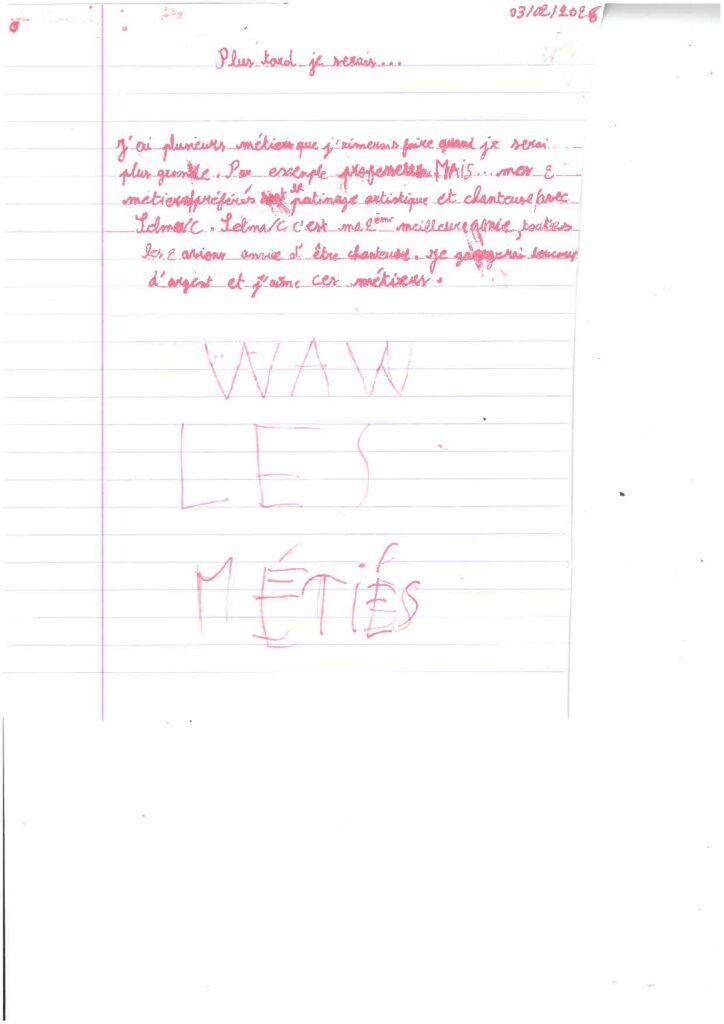 03/02/2026
Plus tard je serais...
J'ai plusieurs métiers que j'aimerais faire quand je serai
plus grande. Par exemple professeur MAIS... mes 2
métiers préférés sont le patinage artistique et chanteuse avec
Selma/C. Selma/C c'est ma 2ème meilleure amie, toutes
les 2 avions envie d'être chanteuse. Je gagnerai boucoup
d'argent et j'aime ces métiers.
WAW
LES
MÉTiÉS